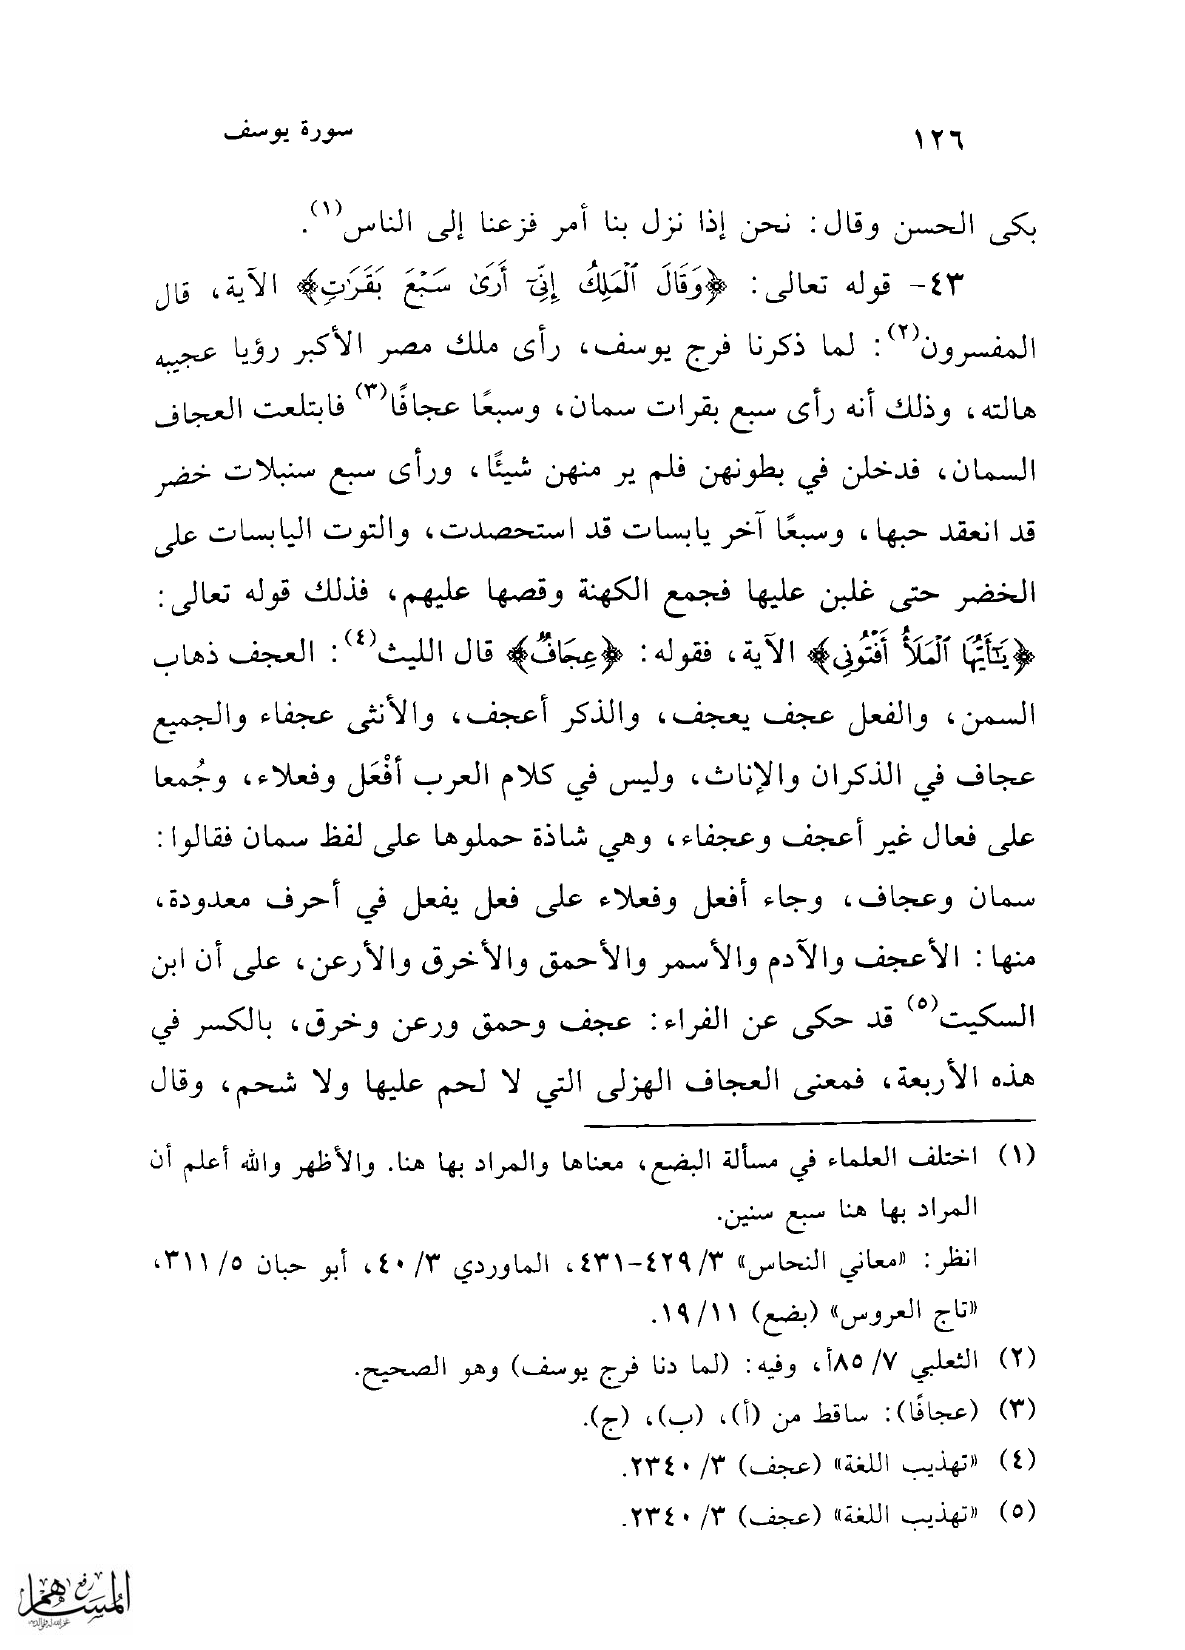 ١٢٦ سورة يوسف
بكى الحسن وقال: نحن إذا نزل بنا أمر فزعنا إلى الناس(١).
٤٣- قوله تعالى: ﴿وَقَالَ ٱلْمَلِكُ إِنِّىٓ أَرَىٰ سَبْعَ بَقَرَٰتٍ﴾ الآية، قال
المفسرون(٢): لما ذكرنا فرج يوسف، رأى ملك مصر الأكبر رؤيا عجيبه
هالته، وذلك أنه رأى سبع بقرات سمان، وسبعًا عجافًا(٣) فابتلعت العجاف
السمان، فدخلن في بطونهن فلم ير منهن شيئًا، ورأى سبع سنبلات خضر
قد انعقد حبها، وسبعًا آخر يابسات قد استحصدت، والتوت اليابسات على
الخضر حتى غلبن عليها فجمع الكهنة وقصها عليهم، فذلك قوله تعالى:
﴿يَٰٓأَيُّهَا ٱلْمَلَأُ أَفْتُونِى﴾ الآية، فقوله: ﴿عِجَافٌ﴾ قال الليث(٤): العجف ذهاب
السمن، والفعل عجف يعجف، والذكر أعجف، والأنثى عجفاء والجميع
عجاف في الذكران والإناث، وليس في كلام العرب أفْعَل وفعلاء، وجُمعا
على فعال غير أعجف وعجفاء، وهي شاذة حملوها على لفظ سمان فقالوا:
سمان وعجاف، وجاء أفعل وفعلاء على فعل يفعل في أحرف معدودة،
منها: الأعجف والآدم والأسمر والأحمق والأخرق والأرعن، على أن ابن
السكيت(٥) قد حكى عن الفراء: عجف وحمق ورعن وخرق، بالكسر في
هذه الأربعة، فمعنى العجاف الهزلى التي لا لحم عليها ولا شحم، وقال
(١) اختلف العلماء في مسألة البضع، معناها والمراد بها هنا. والأظهر والله أعلم أن
المراد بها هنا سبع سنين.
انظر: «معاني النحاس» ٣/ ٤٢٩-٤٣١، الماوردي ٣/ ٤٠، أبو حبان ٥/ ٣١١،
«تاج العروس» (بضع) ١١/ ١٩.
(٢) الثعلبي ٧/ ٨٥أ، وفيه: (لما دنا فرج يوسف) وهو الصحيح.
(٣) (عجافًا): ساقط من (أ)، (ب)، (ج).
(٤) «تهذيب اللغة» (عجف) ٣/ ٢٣٤٠.
(٥) «تهذيب اللغة» (عجف) ٣/ ٢٣٤٠.